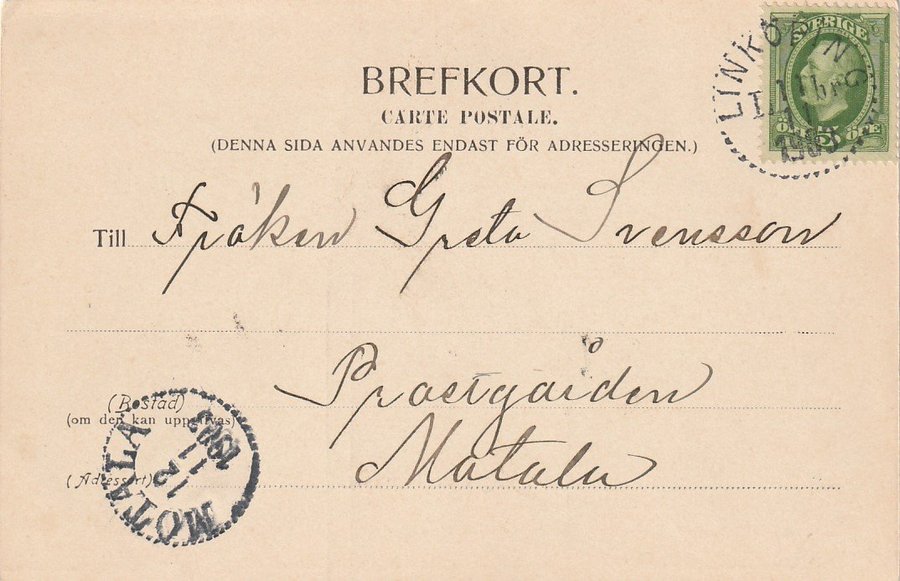 BREFKORT.
CARTE POSTALE.
(DENNA SIDA ANVANDES ENDAST FÖR ADRESSERINGEN.)
SVERIGE
LINKÖPING
Till Fröken Greta Svensson
Prostgården
Motala
(Bostad)
(om den kan uppgifvas)
(Adressort)
MOTALA
12
11